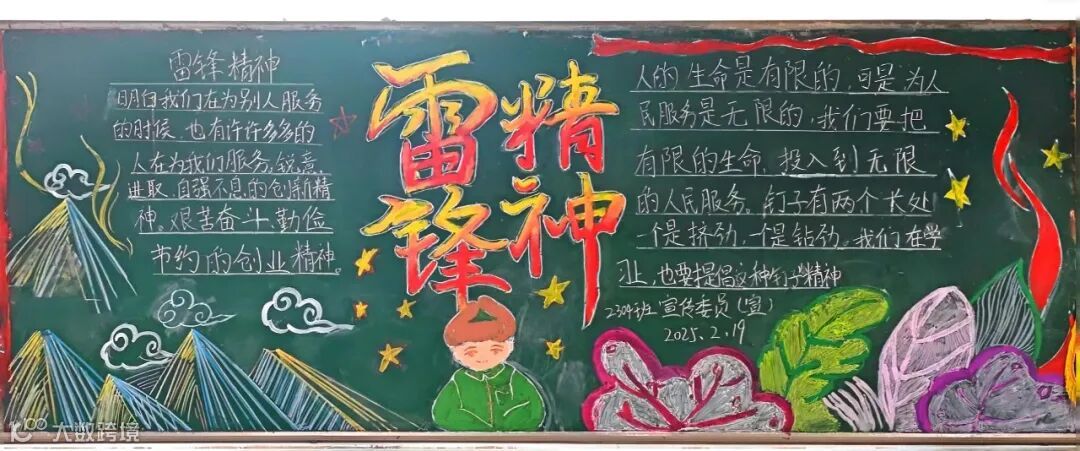 雷锋精神
明白我们在为别人服务
的时候,也有许许多多的
人在为我们服务。锐意
进取、自强不息的创新精
神。艰苦奋斗、勤俭
节约的创业精神。
雷锋
精神
人的生命是有限的,可是为人
民服务是无限的,我们要把
有限的生命,投入到无限
的人民服务。钉子有两个长处
一个是挤劲,一个是钻劲。我们在学
习上,也要提倡这种钉子精神
2304班 宣传委员(宣)
2025.2.19
大数跨境